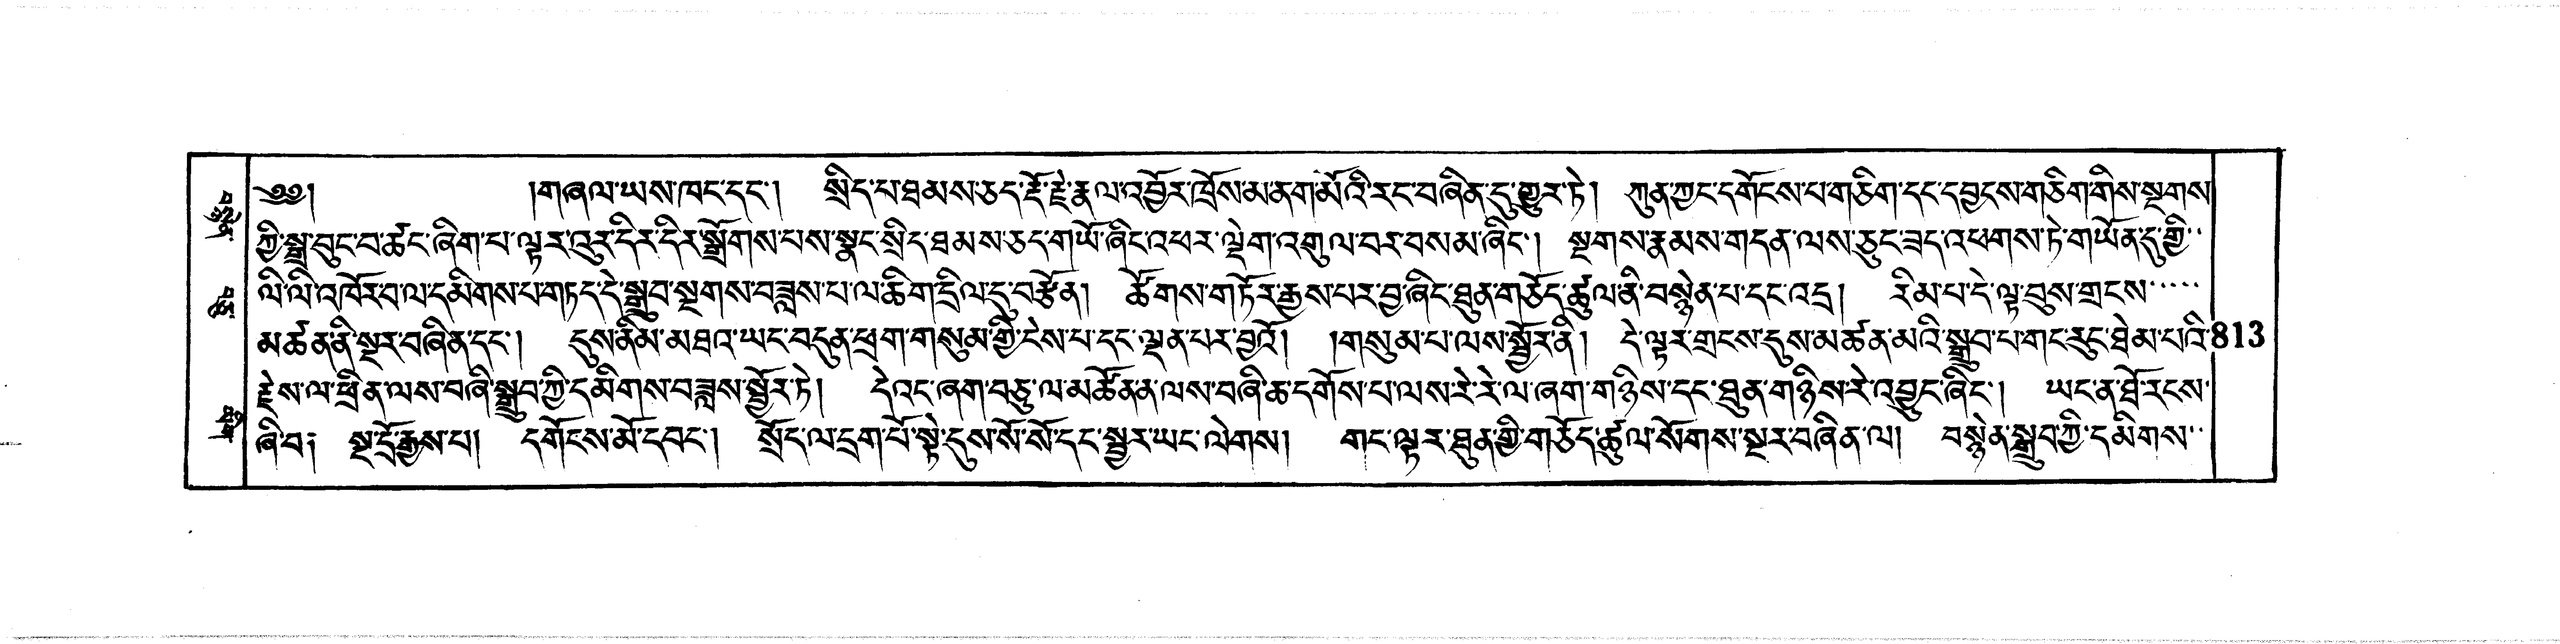 ༄༅། །གཞལ་ཡས་ཁང་དང་། སྲིད་པ་ཐམས་ཅད་རྡོ་རྗེ་རྣལ་འབྱོར་ཁྲོས་མ་ནག་མོའི་རང་བཞིན་དུ་གྱུར་ཏེ། ཀུན་ཀྱང་དགོངས་པ་གཅིག་དང་དབྱངས་གཅིག་གིས་སྔགས
ཀྱི་སྒྲ་བུང་བ་ཚང་ཞིག་པ་ལྟར་འུར་དིར་དིར་སྒྲོགས་པས་སྣང་སྲིད་ཐམས་ཅད་གཡོ་ཞིང་འཕར་ལྡེག་འགུལ་བར་བསམ་ཞིང་། སྔགས་རྣམས་གདན་ལས་ཅུང་ཟད་འཕགས་ཏེ་གཡོན་དུ་གྱི་
ལི་ལི་འཁོར་བ་ལ་དམིགས་པ་གཏད་དེ་སྒྲུབ་སྔགས་བཟླས་པ་ལ་ཆིག་དྲིལ་དུ་བརྩོན། ཚོགས་གཏོར་རྒྱས་པར་བྱ་ཞིང་ཐུན་གཅོད་ཚུལ་ནི་བསྙེན་པ་དང་འདྲ། རིམ་པ་དེ་ལྟ་བུས་གྲངས་
མ་ཚན་ནི་སྔར་བཞིན་དང་། དུས་ནི་མ་མཐའ་ཡང་བདུན་ཕྲག་གསུམ་གྱི་ངེས་པ་དང་ལྡན་པར་བྱའོ། །གསུམ་པ་ལས་སྦྱོར་ནི། དེ་ལྟར་གྲངས་དུས་མཚན་མའི་སྒྲུབ་པ་གང་རུང་ཐེམ་པའི་ 813
རྗེས་ལ་ཕྲིན་ལས་བཞི་སྒྲུབ་ཀྱི་དམིགས་བཟླས་སྦྱོར་ཏེ། དེའང་ཞག་བཅུ་ལ་མཚོན་ན་ལས་བཞི་ཆ་དགོས་པ་ལས་རེ་རེ་ལ་ཞག་གཉིས་དང་ཐུན་གཉིས་རེ་འབྱུང་ཞིང་། ཡང་ན་ཐོ་རངས་
ཞི་བ། སྔ་དྲོ་རྒྱས་པ། དགོངས་མོ་དབང་། སྲོད་ལ་དྲག་པོ་སྟེ་དུས་སོ་སོ་དང་སྦྱར་ཡང་ལེགས། གང་ལྟར་ཐུན་གྱི་གཅོད་ཚུལ་སོགས་སྔར་བཞིན་ལ། བསྙེན་སྒྲུབ་ཀྱི་དམིགས་